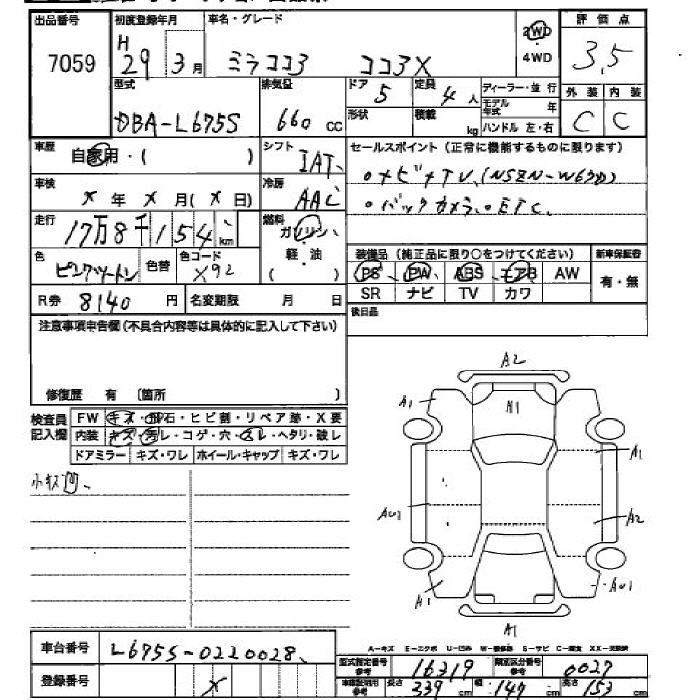 出品番号 初度登録年月 車名・グレード 2WD 評価点
7059 H 29年 3月 ミラココア ココアX 4WD 3.5
型式 排気量 ドア 5 定員 4人 ディーラー・並行 外装 内装
DBA-L675S 660 cc 形状 積載 kg モデル年式 年 C C
ハンドル 左・右
車歴 自家用・( ) シフト IAT セールスポイント(正常に機能するものに限ります)
車検 X年 X月(X日) 冷房 AAC ・ナビ・TV(NSZN-W67D)
走行 17万8千154km 燃料 ガソリン ・バックカメラ・ETC
色 ピンクツートン 色替 色コード X92 軽・油 ( )
装備品(純正品に限り○をつけてください) 新車保証書
PS PW ABS エアB AW 有・無
SR ナビ TV カワ
R券 8140円 名変期限 月 日 後日品
注意事項申告欄(不具合内容等は具体的に記入して下さい)
修復歴 有 〔箇所 〕
検査員記入欄 FW キズ・飛石・ヒビ割・リペア跡・X要
内装 キズ・汚レ・コゲ・穴・スレ・ヘタリ・破レ
ドアミラー キズ・ワレ ホイール・キャップ キズ・ワレ
小キズ凹
A2
A1 A1
A1
AU1 A2
A1 AU1
A1
車台番号 L675S-0220028
登録番号 X
A-キズ E-エクボ U-凹み W-補修跡 S-サビ C-腐食 XX-交換済
型式指定番号 16319 類別区分番号 0027
車庫証明用参考 長さ 339 cm 幅 147 cm 高さ 153 cm